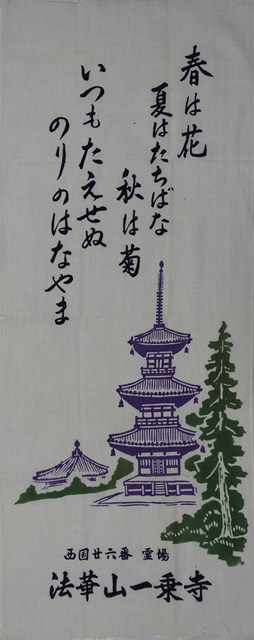 春は花
夏はたちばな
秋は菊
いつもたえせぬ
のりのはなやま
西国廿六番 霊場
法華山一乗寺